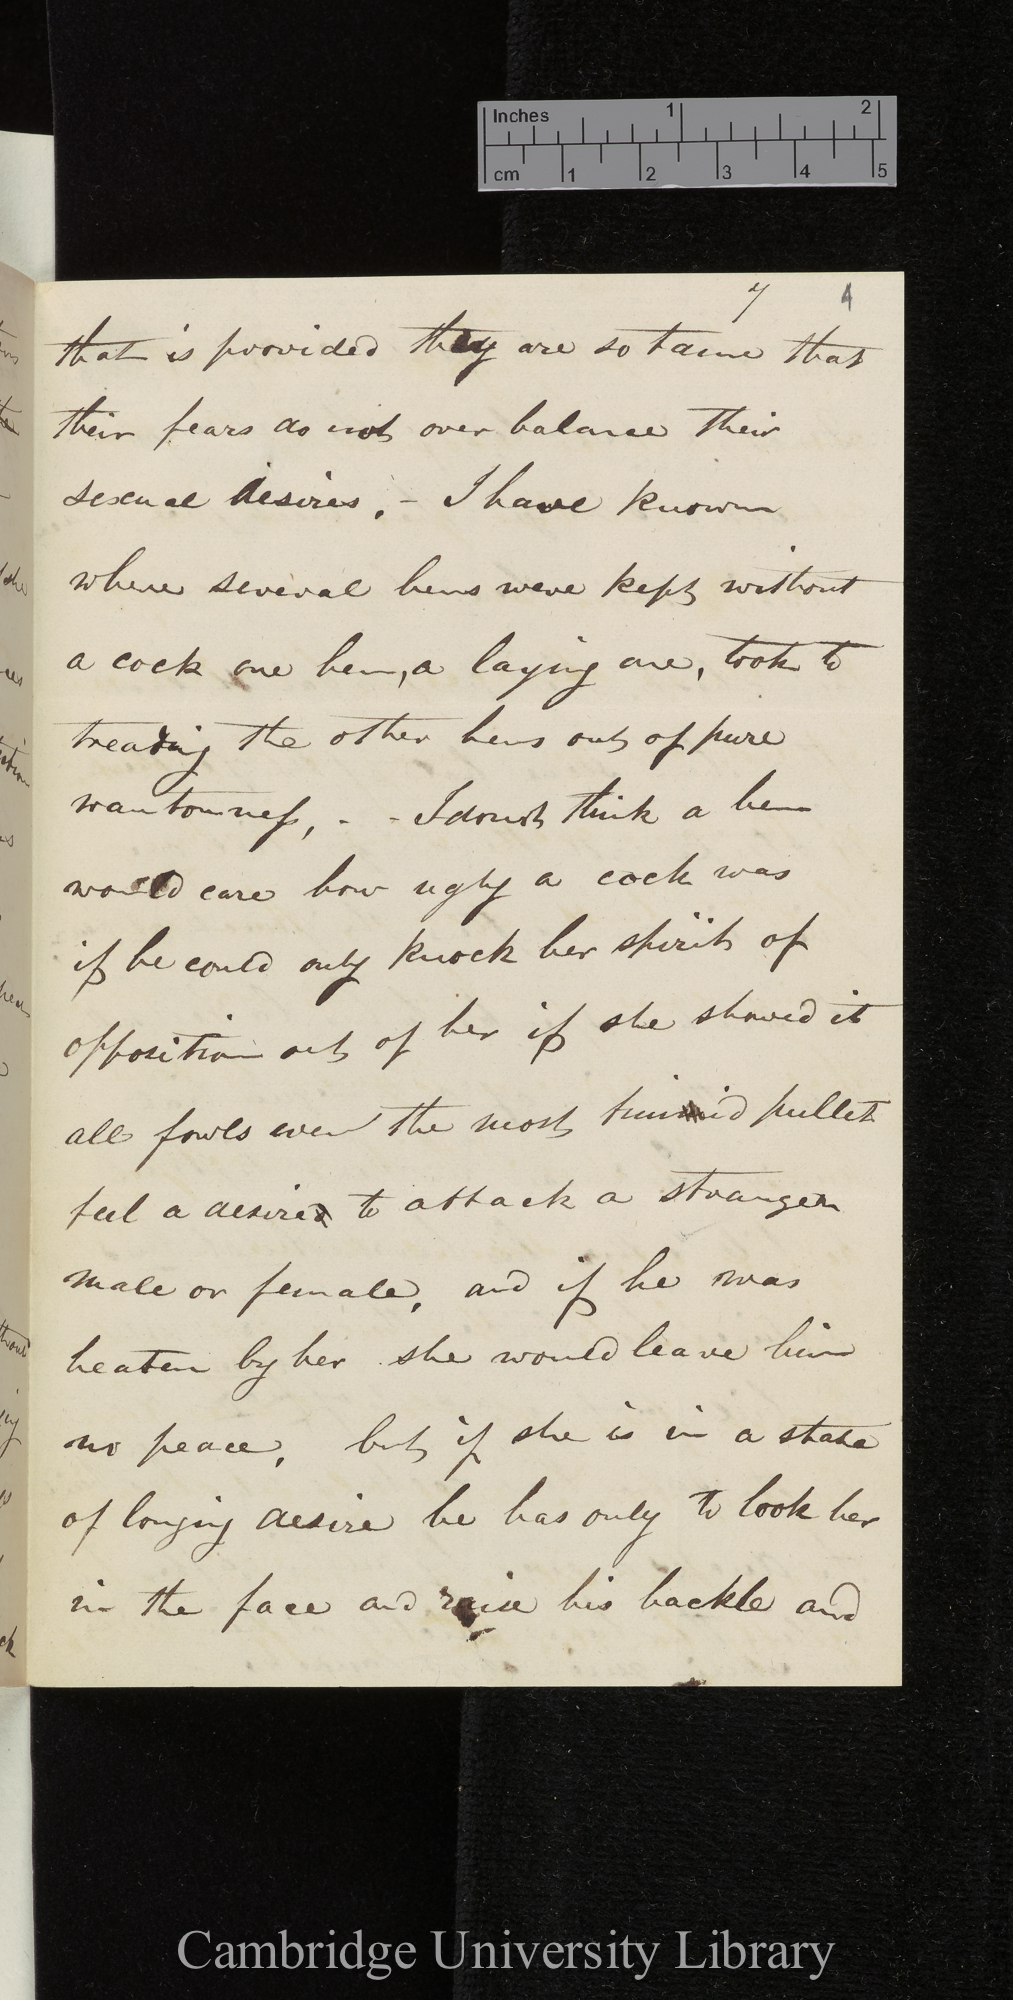 Inches 1 2
cm 1 2 3 4 5
7 4
that is provided they are so tame that
their fears do not over balance their
sexual desires, - I have known
where several hens were kept without
a cock one hen, a laying one, took to
treading the other hens out of pure
wantonness, - - I dont think a hen
would care how ugly a cock was
if he could only knock her spirit of
opposition out of her if she showed it
all fowls even the most timid pullet
feel a desire to attack a stranger
male or female, and if he was
beaten by her she would leave him
no peace, but if she is in a state
of longing desire he has only to look her
in the face and raise his hackle and
Cambridge University Library